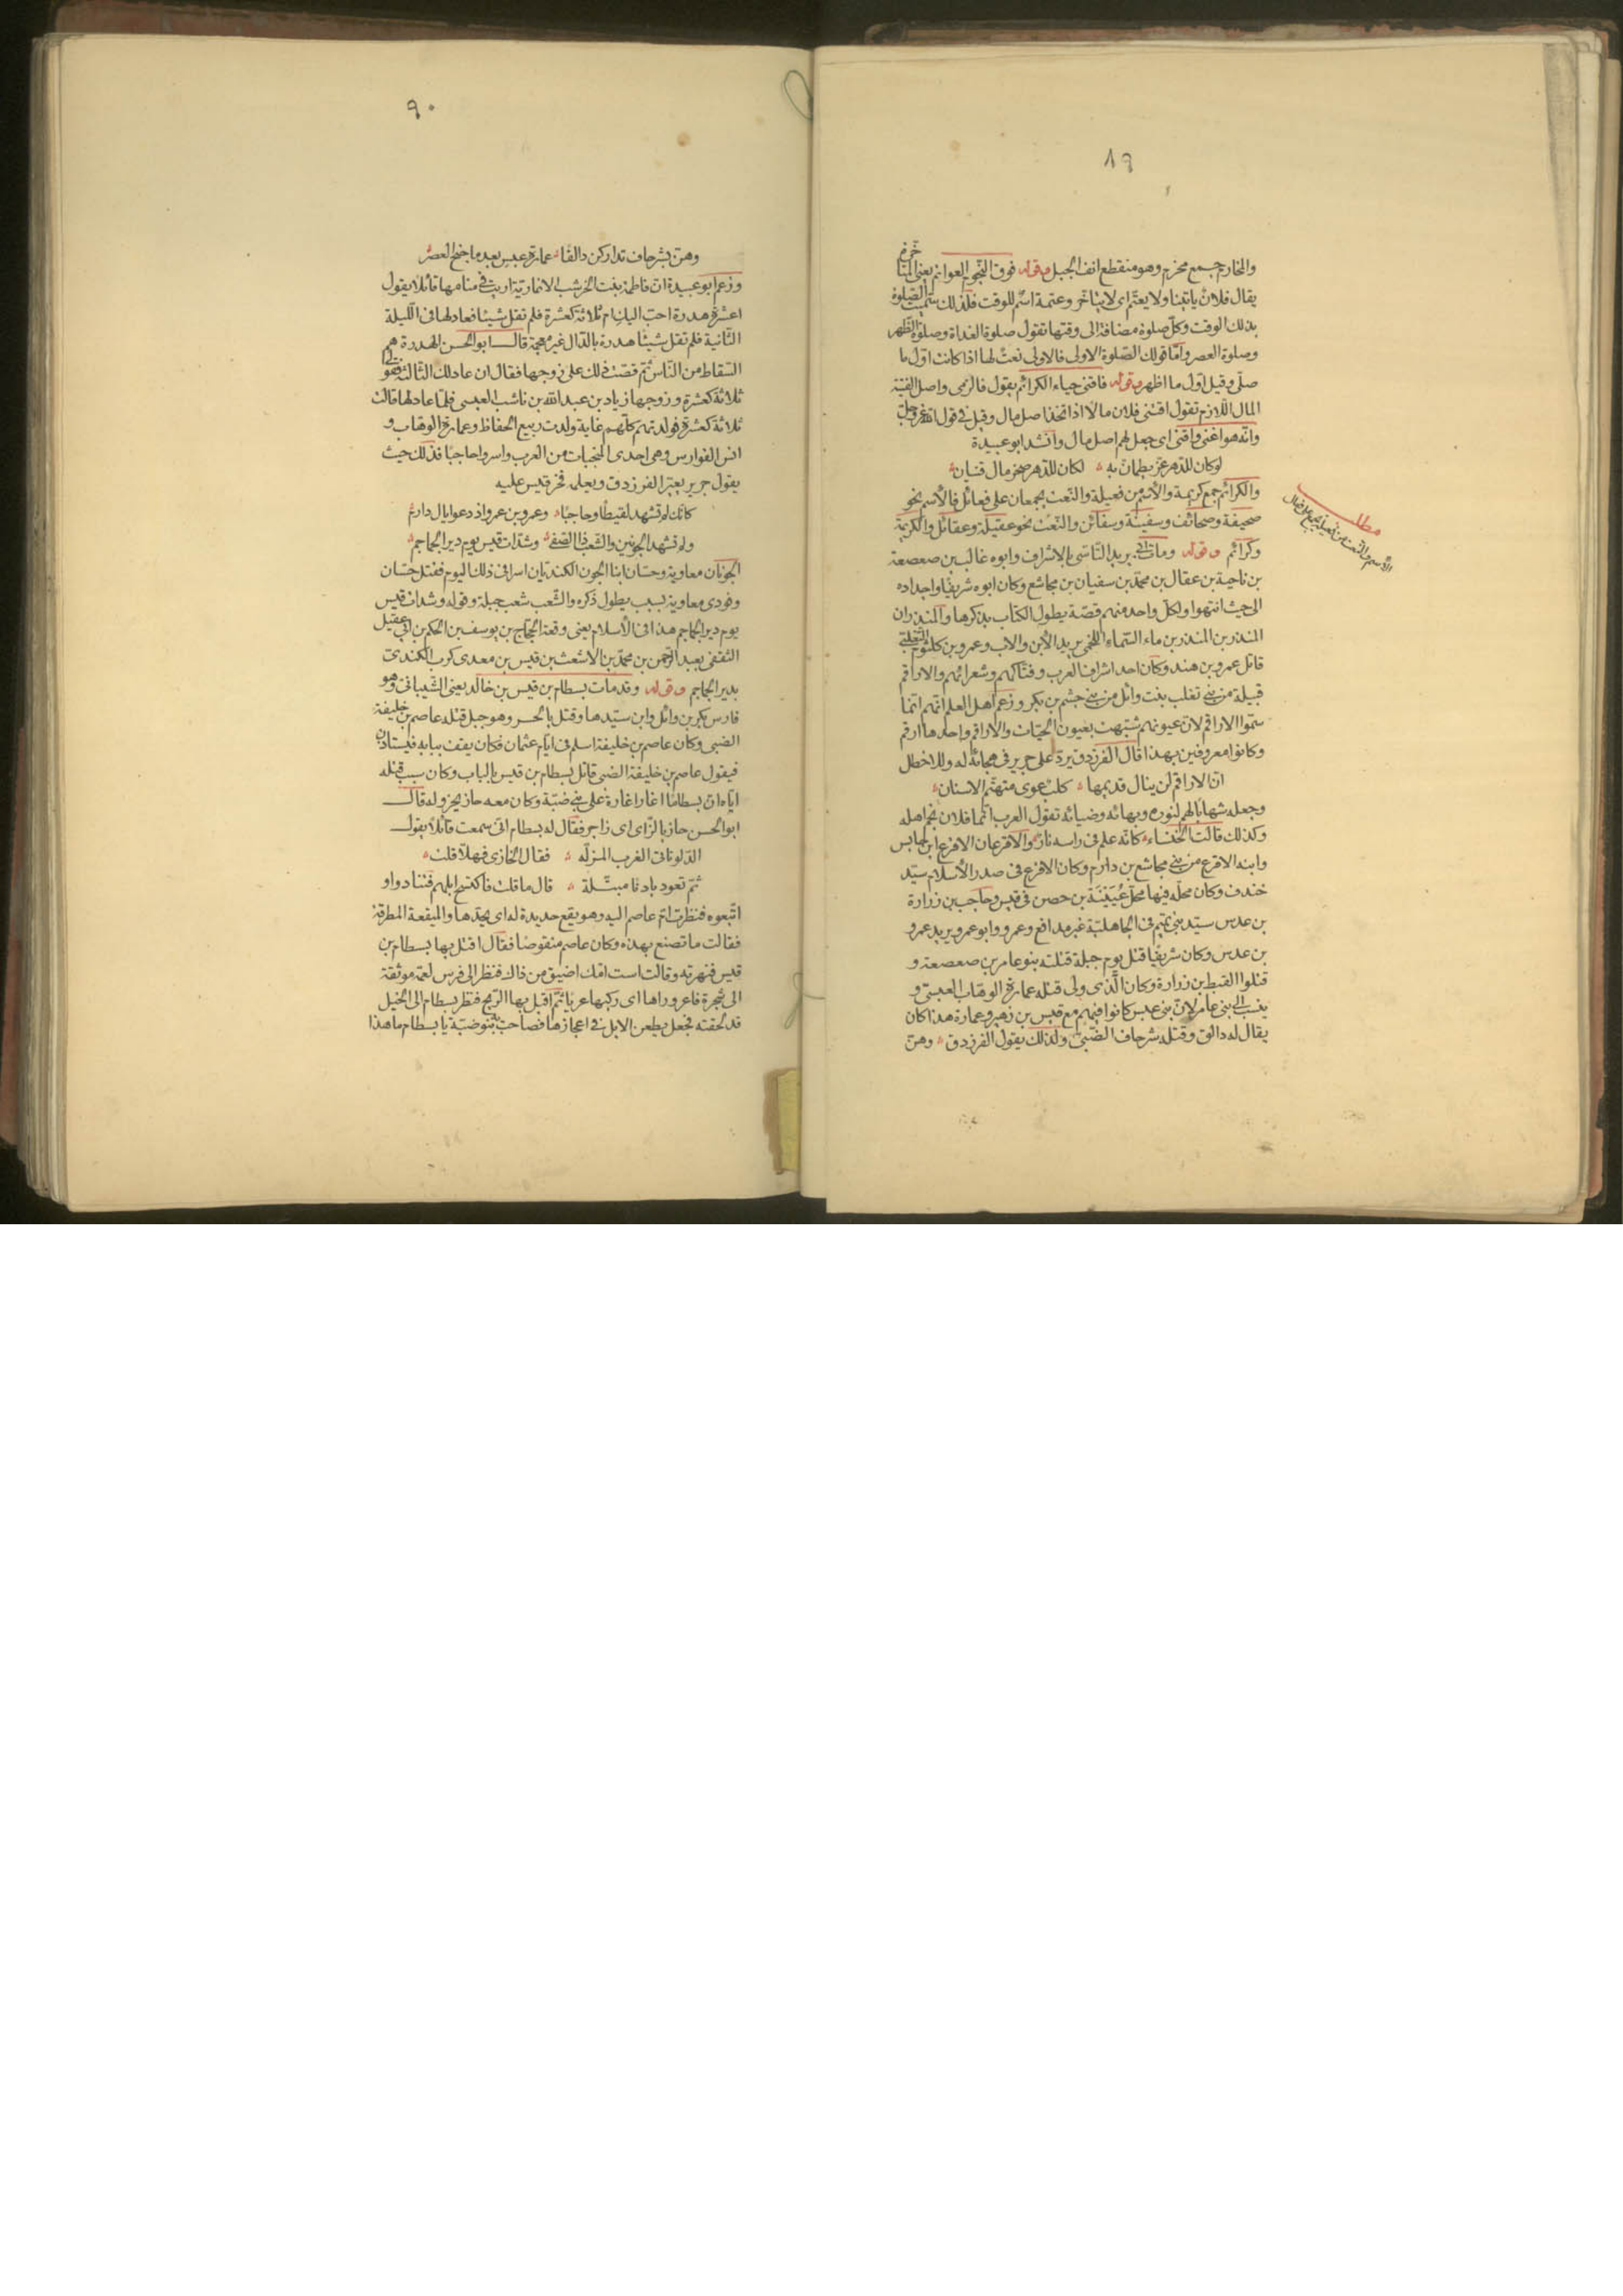 ٨٩
والمخارم جمع مخرم وهو منقطع انف الجبل وقوله فوق النجوم العواتم يعنى
يقال فلان ياتينا ولا يعتم اى لا يتاخر وعتمة اسم للوقت فلذلك سميت الصلوة
بذلك الوقت وكل صلوة مضافة الى وقتها تقول صلوة الغداة وصلوة الظهر
وصلوة العصر واما قولك الصلوة الاولى فالاولى نعت لها اذا كانت اول ما
صلى وقيل اول ما اظهر وقوله فاقنى حياء الكرائم يقول فالزمى واصل القنية
المال اللازم تقول اقتنى فلان مالا اذا اتخذ اصل مال وقيل فى قول الله عز وجل
وانه هو اغنى واقنى اى جعل لهم اصل مال وانشد ابو عبيدة
لو كان للدهر عز يطمان به ۞ لكان للدهر صخر مال قنيان
والكرائم جمع كريمة والاسم من فعيلة والنعت يجمعان على فعائل فالاسم نحو
صحيفة وصحائف وسفينة وسفائن والنعت نحو عقيلة وعقائل والكريمة
وكرائم وقوله ومات ابى يريد التاسى بالاشراف وابوه غالب بن صعصعة
بن ناجية بن عقال بن محمد بن سفيان بن مجاشع وكان ابوه شريفا واجداده
الى حيث انتهوا ولكل واحد منهم قصة يطول الكتاب بذكرها والمنذران
المنذر بن المنذر بن ماء السماء اللخمى يريد الابن والاب وعمرو بن كلثوم التغلبى
قاتل عمرو بن هند وكان احد اشراف العرب وفتاكهم وشعرائهم والاراقم
قبيلة من بنى تغلب بنت وائل من بنى جشم بن بكر وزعم اهل العلم انهم انما
سموا الاراقم لان عيونهم شبهت بعيون الحيات والاراقم واحدها ارقم
وكانوا معروفين بهذا قال الفرزدق يرد على جرير فى هجائه له وللاخطل
ان الاراقم لن ينال قديمها ۞ كلب عوى متهتم الاسنان
وجعله شهابا لهم لنوره وبهائه وضيائه تقول العرب انما فلان نجم اهله
وكذلك قالت الخنساء كانه علم فى راسه نار والاقرعان الاقرع ابن حابس
وابنه الاقرع من بنى مجاشع بن دارم وكان الاقرع فى صدر الاسلام سيد
خندف وكان محله فيها محل عيينة بن حصن فى قيس وحاجب بن زرارة
بن عدس سيد بنى تميم فى الجاهلية غير مدافع وعمرو وابو عمرو يريد عمرو
بن عدس وكان شريفا قتل يوم جبلة قتلته بنو عامر بن صعصعة و
قتلوا لقيط بن زرارة وكان الذى ولى قتله عمارة الوهاب العبسى و
ينسب الى بنى عامر لان بنى عبس كانوا فيهم مع قيس بن زهير وعمارة هذا كان
يقال له دالق وقتله شرحاف الضبى ولذلك يقول الفرزدق ۞ وهن
مطلب
الاسم والنعت من فعيلة يجمع على فعائل
٩٠
وهن بشرحاف تداركن دالقا ۞ عمارة عبس بعد ما جنح العصر
وزعم ابو عبيدة ان فاطمة بنت الخرشب الانمارية اريت فى منامها قائلا يقول
اعشرة هدرة احب اليك ام ثلاثة كعشرة فلم تقل شيئا فعاد لها فى الليلة
الثانية فلم تقل شيئا هدرة بالدال غير معجمة قال ابو الحسن الهدرة هم
السقاط من الناس ثم قصت ذلك على زوجها فقال ان عاد لك الثالثة فقولى
ثلاثة كعشرة وزوجها زياد بن عبد الله بن ناشب العبسى فلما عاد لها قالت
ثلاثة كعشرة فولدتهم كلهم غاية ولدت ربيع الحفاظ وعمارة الوهاب و
انس الفوارس وهى احدى المنجبات من العرب واسروا حاجبا فذلك حيث
يقول جرير يعير الفرزدق ويعلمه فخر قيس عليه
كانك لم تشهد لقيطا وحاجبا ۞ وعمرو بن عمرو اذ دعوا يال دارم
ولم تشهد الجونين والشعب ذا الصفى ۞ وشدات قيس يوم دير الجماجم
الجونان معاوية وحسان ابنا الجون الكنديان اسرا فى ذلك اليوم فقتل حسان
وفودى معاوية بسبب يطول ذكره والشعب شعب جبلة وقوله وشدات قيس
يوم دير الجماجم هذا فى الاسلام يعنى وقعة الحجاج بن يوسف بن الحكم بن ابى عقيل
الثقفى بعبد الرحمن بن محمد بن الاشعث بن قيس بن معدى كرب الكندى
بدير الجماجم وقوله وقد مات بسطام بن قيس بن خالد يعنى الشيبانى وهو
فارس بكر بن وائل وابن سيدها وقتل بالحسن وهو جبل قتله عاصم بن خليفة
الضبى وكان عاصم بن خليفة اسلم فى ايام عثمان فكان يقف ببابه فيستاذن
فيقول عاصم بن خليفة الضبى قاتل بسطام بن قيس بالباب وكان سبب قتله
اياه ان بسطاما اغار اغارة على بنى ضبة وكان معه حاز يحزو له قال
ابو الحسن حاز بالزاى اى زاجر فقال له بسطام انى سمعت قائلا يقول
الدلو تاتى الغرب المزله ۞ فقال الحازى فهلا قلت
ثم تعود بادنا مبتلة ۞ قال ما قلت فاكتسح ابلهم فتنادوا و
اتبعوه فنظرت ام عاصم اليه وهو يقع حديدة له اى يحدها والميقعة المطرقة
فقالت ما تصنع بهذه وكان عاصم منقوصا فقال اقتل بها بسطام بن
قيس فنهرته وقالت است امك اضيق من ذاك فنظر الى فرس لعمه موثقة
الى شجرة فاعروراها اى ركبها عريا ثم اقبل بها الريح فنظر بسطام الى الخيل
قد لحقته فجعل يطعن الابل فى اعجازها فصاحت به بنو ضبة يا بسطام ما هذا